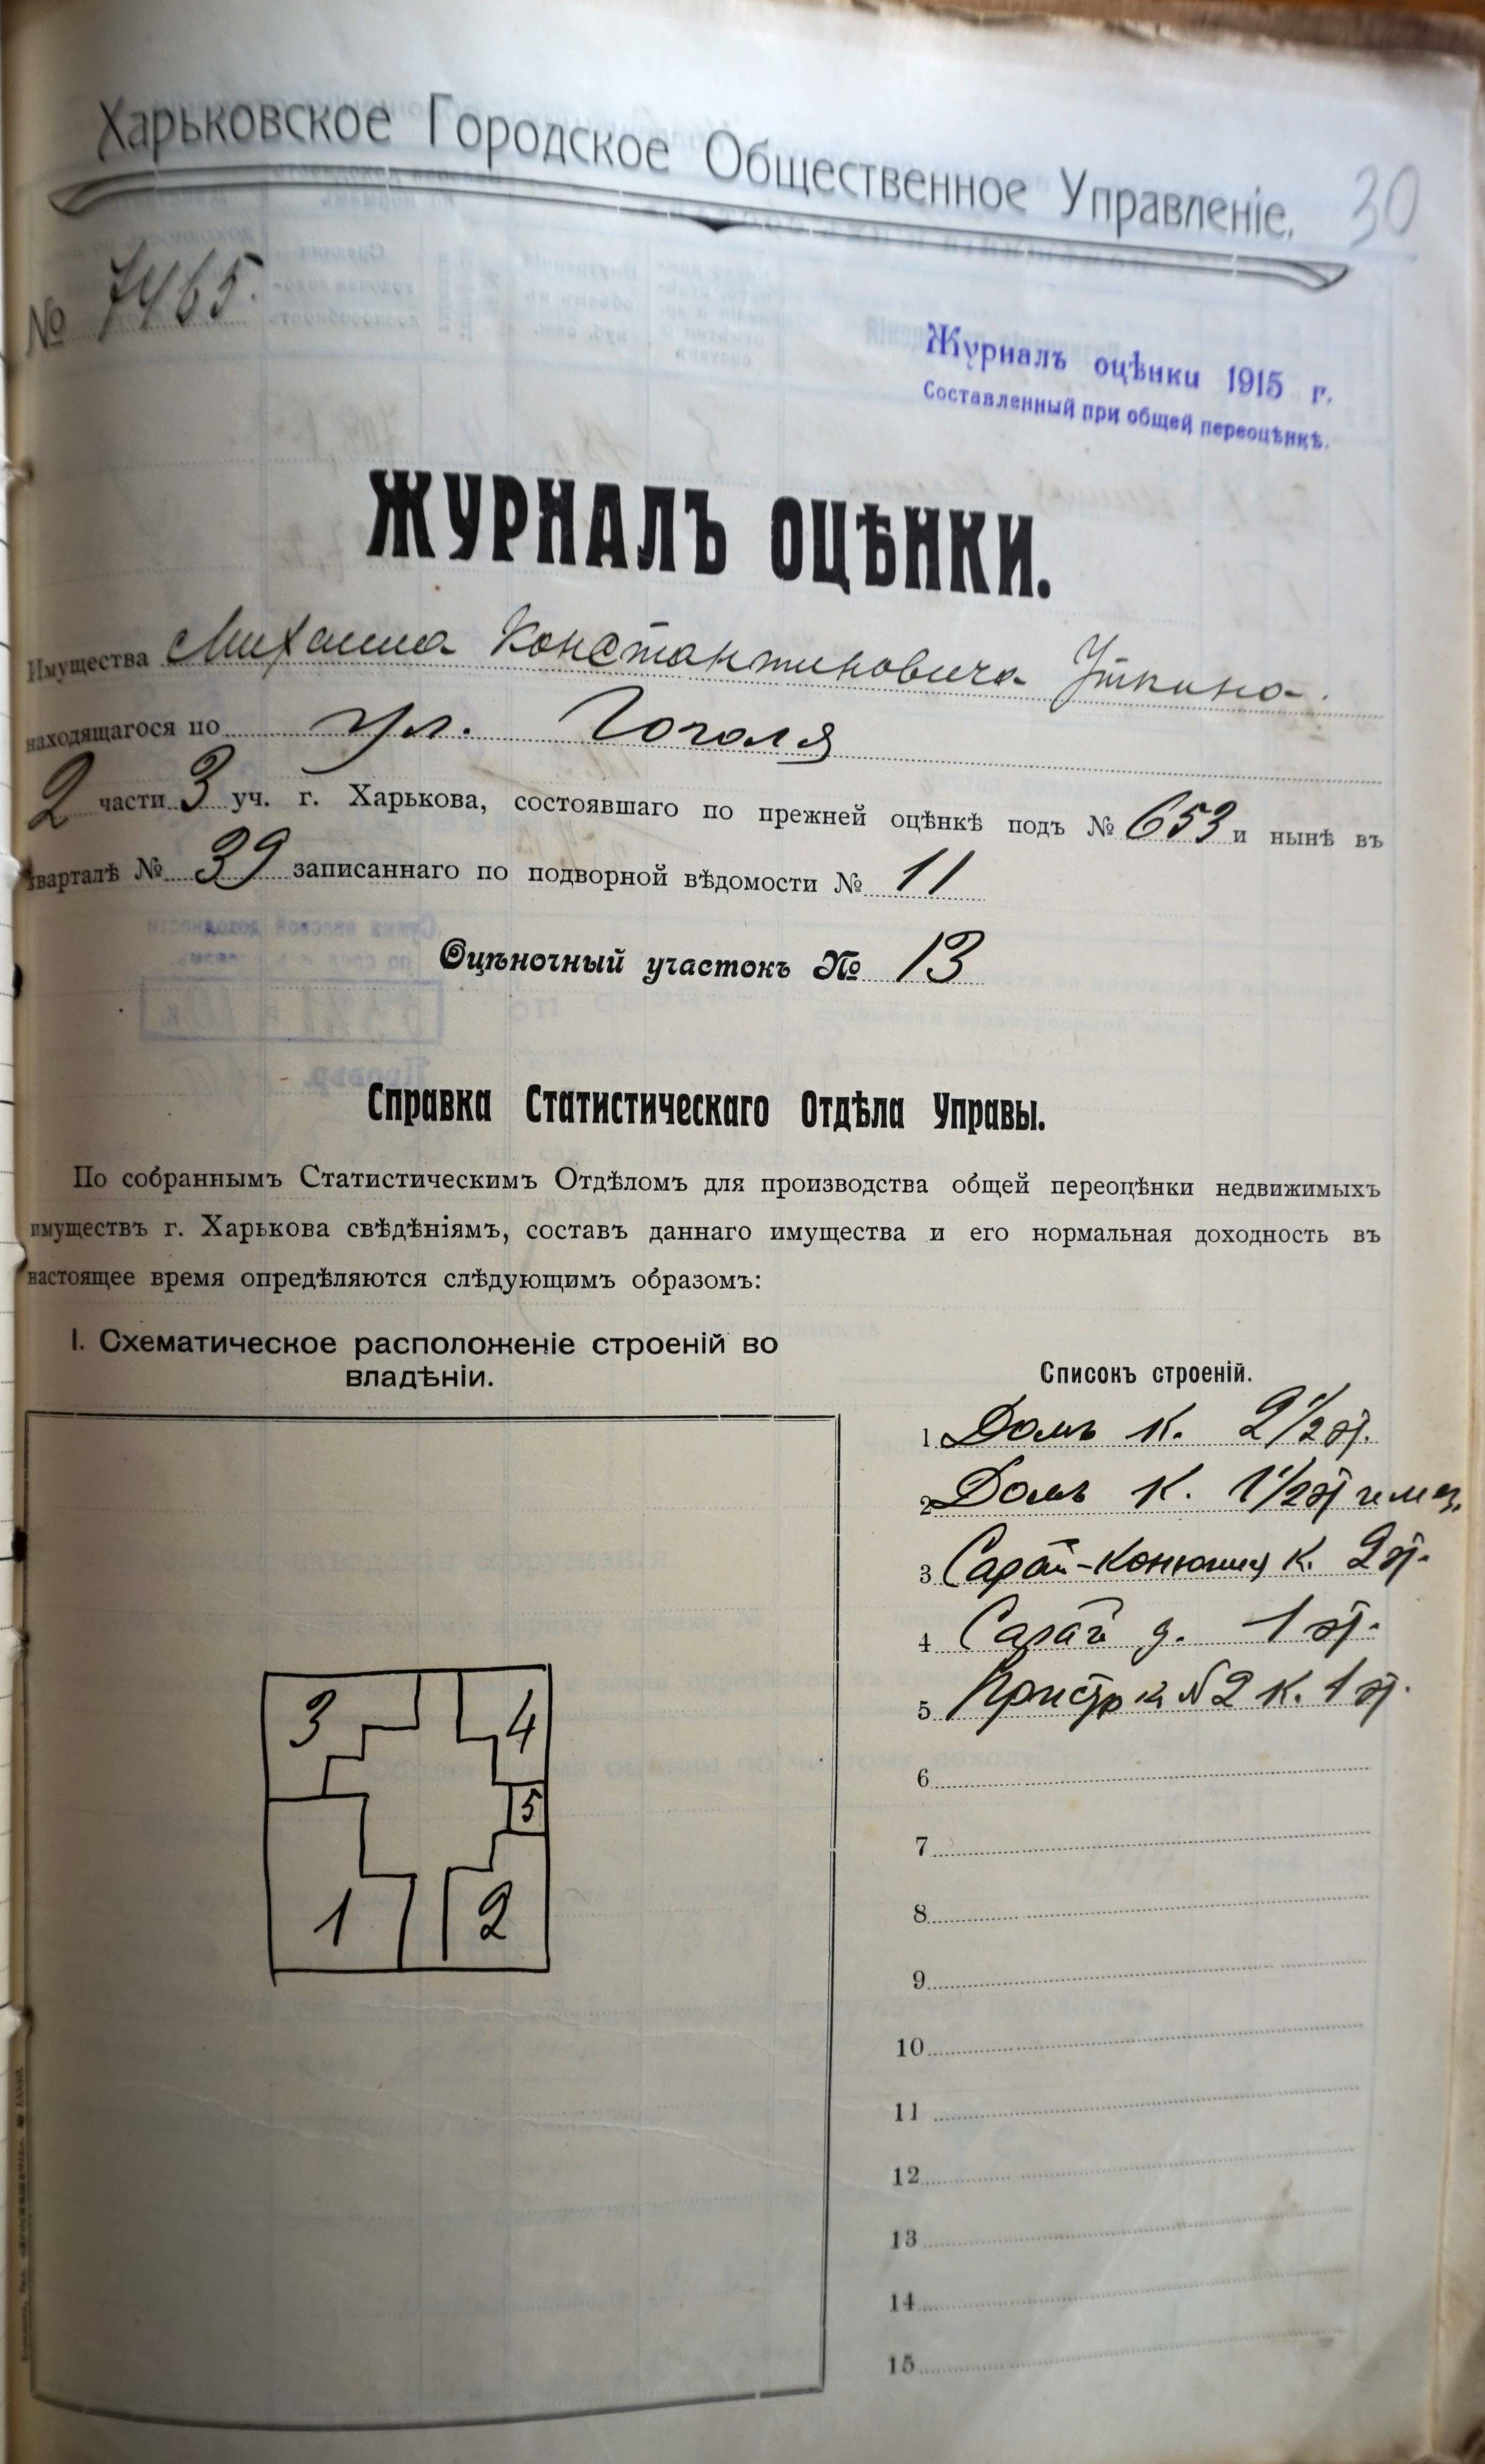 Харьковское Городское Общественное Управленіе.
30
№ 7465.
Журналъ оцѣнки 1915 г.
Составленный при общей переоцѣнкѣ.
ЖУРНАЛЪ ОЦѢНКИ.
Имущества Михаила Константиновича Уткина.
находящагося по ул. Гоголя
2 части 3 уч. г. Харькова, состоявшаго по прежней оцѣнкѣ подъ № 653 и нынѣ въ
кварталѣ № 39 записаннаго по подворной вѣдомости № 11
Оцѣночный участокъ № 13
Справка Статистическаго Отдѣла Управы.
По собраннымъ Статистическимъ Отдѣломъ для производства общей переоцѣнки недвижимыхъ
имуществъ г. Харькова свѣдѣніямъ, составъ даннаго имущества и его нормальная доходность въ
настоящее время опредѣляются слѣдующимъ образомъ:
I. Схематическое расположеніе строеній во
владѣніи.
Списокъ строеній.
1 Домъ к. 2 1/2 эт.
2 Домъ к. 1 1/2 эт и мез.
3 Сарай-конюшня к. 2 эт.
4 Сарай д. 1 эт.
5 Пристр къ № 2 к. 1 эт.
6
7
8
9
10
11
12
13
14
15
3
4
5
1
2